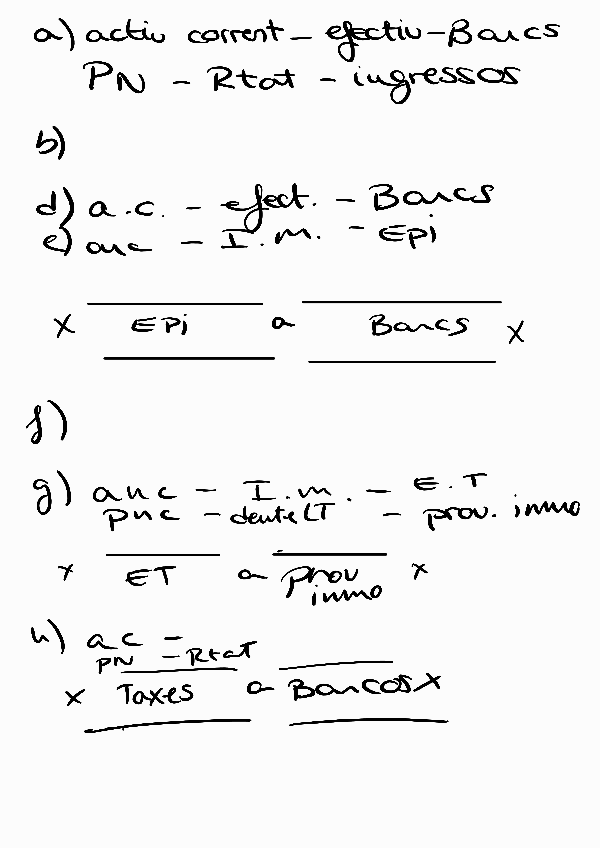 a) actiu corrent - efectiu - Bancs
PN - Rtat - ingressos
b)
d) a.c. - efect. - Bancs
e) anc - I.m. - EPi
x EPi a Bancs x
f)
g) anc - I.m. - E.T
pnc - deute LT - prov. immo
x ET a Prov immo x
h) ac -
PN - Rtat
x Taxes a Bancos x